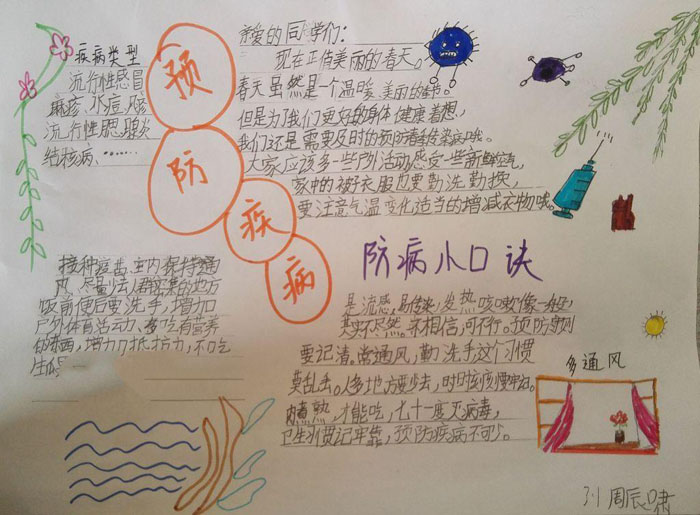 疾病类型
流行性感冒
麻疹、水痘、风疹
流行性腮腺炎
结核病、……
预防疾病
亲爱的同学们：
现在正值美丽的春天。
春天虽然是一个温暖、美丽的季节。
但是为了我们更好的身体健康着想，
我们还是需要及时的预防春季传染病哦。
大家应该多一些户外活动感受一些新鲜空气，
家中的被子衣服也要勤洗勤换，
要注意气温变化适当的增减衣物哦。
接种疫苗、室内保持通
风、尽量少去人群密集的地方
饭前便后要洗手，增加
户外体育运动、多吃有营养
的东西，增力口抵抗力，不吃
防病小口诀
是流感，易传染，发热咳嗽像一般，
其实不尽然。不相信，可不行。预防守则
要记清。常通风，勤洗手这个习惯
莫乱丢。人多地方要少去，时时
煮熟，才能吃，七十一度灭病毒，
卫生习惯记牢靠，预防疾病不可少。
多通风
3.1 周辰啸